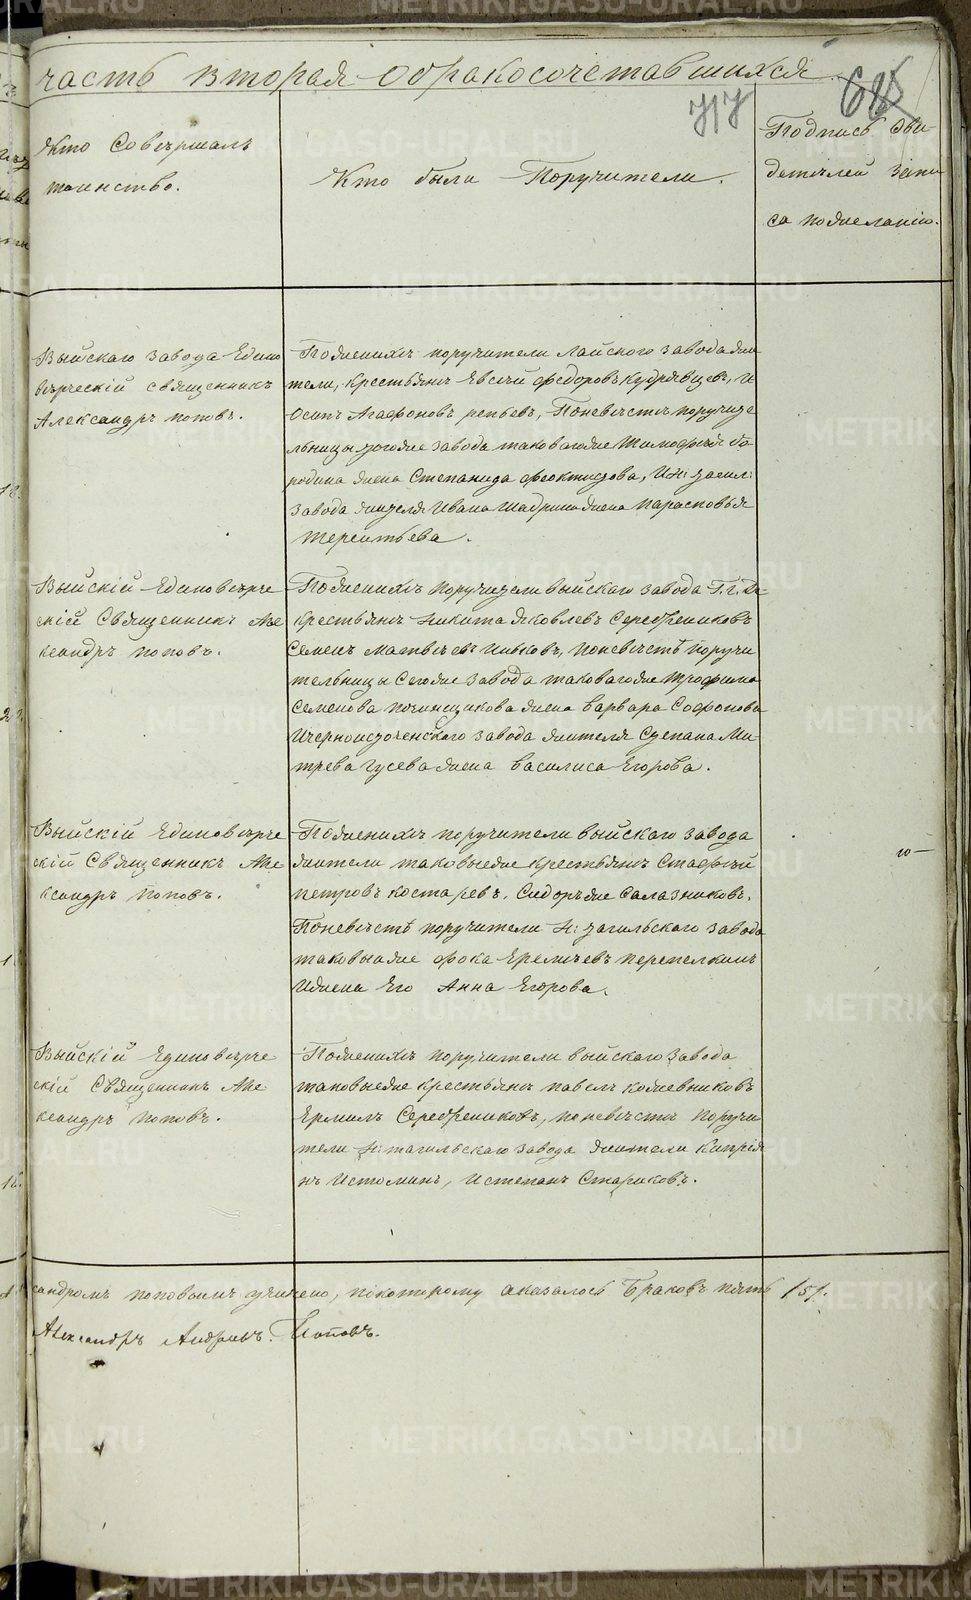 часть вторая о бракосочетавшихся
717
Кто Совершалъ
таинство.
Кто были Поручители.
Подпись сви-
детелей запи
си по желанію.
Выйскаго завода Едино
верческій священникъ
Александръ поповъ.
По женихе поручители Лайского завода жи
тели, крестьяне Евсей федоровъ кудрявцевъ, и
Осипъ Агафоновъ репьевъ, По невесте поручите
льницы тогоже завода таковагоже Тимофея бо
родина жена Степанида феоктистова, И Н: тагил:
завода жителя Ивана Шадрина жена Парасковья
терентьева.
Выйскій Единоверче
скій Священникъ Але
ксандръ поповъ.
По женихе поручители выйскаго завода Г.г. Де
крестьяне Никита яковлевъ Серебрениковъ
Семенъ матвеевъ ивковъ, по невесте поручи
тельницы сегоже завода таковагоже трофима
семенова починщикова жена варвара Софонова
И черноисточенскаго завода жителя Степана Ми
трева гусева жена василиса Егорова.
Выйскій Единоверче
скій Священникъ Але
ксандръ Поповъ.
По женихе поручители выйскаго завода
жители таковыеже крестьяне Стафей
петровъ костаревъ. Сидоръ же Салазниковъ.
По невесте поручители Н: тагильскаго завода
таковыяже фока Еремеевъ перепелкинъ
И жена Его Анна Егорова.
Выйскій Единоверче
скій Священникъ Але
ксандръ поповъ.
По женихе поручители выйскаго завода
таковыеже крестьяне павелъ кожевниковъ
Ермилъ Серебрениковъ, по невесте Поручи
тели Н: тагильскаго завода жители Кипрія
нъ Истоминъ, И степанъ Стариковъ.
сандромъ поповымъ учинено, по которому оказалось Браковъ пять /5/.
Александръ Андреевъ Поповъ.